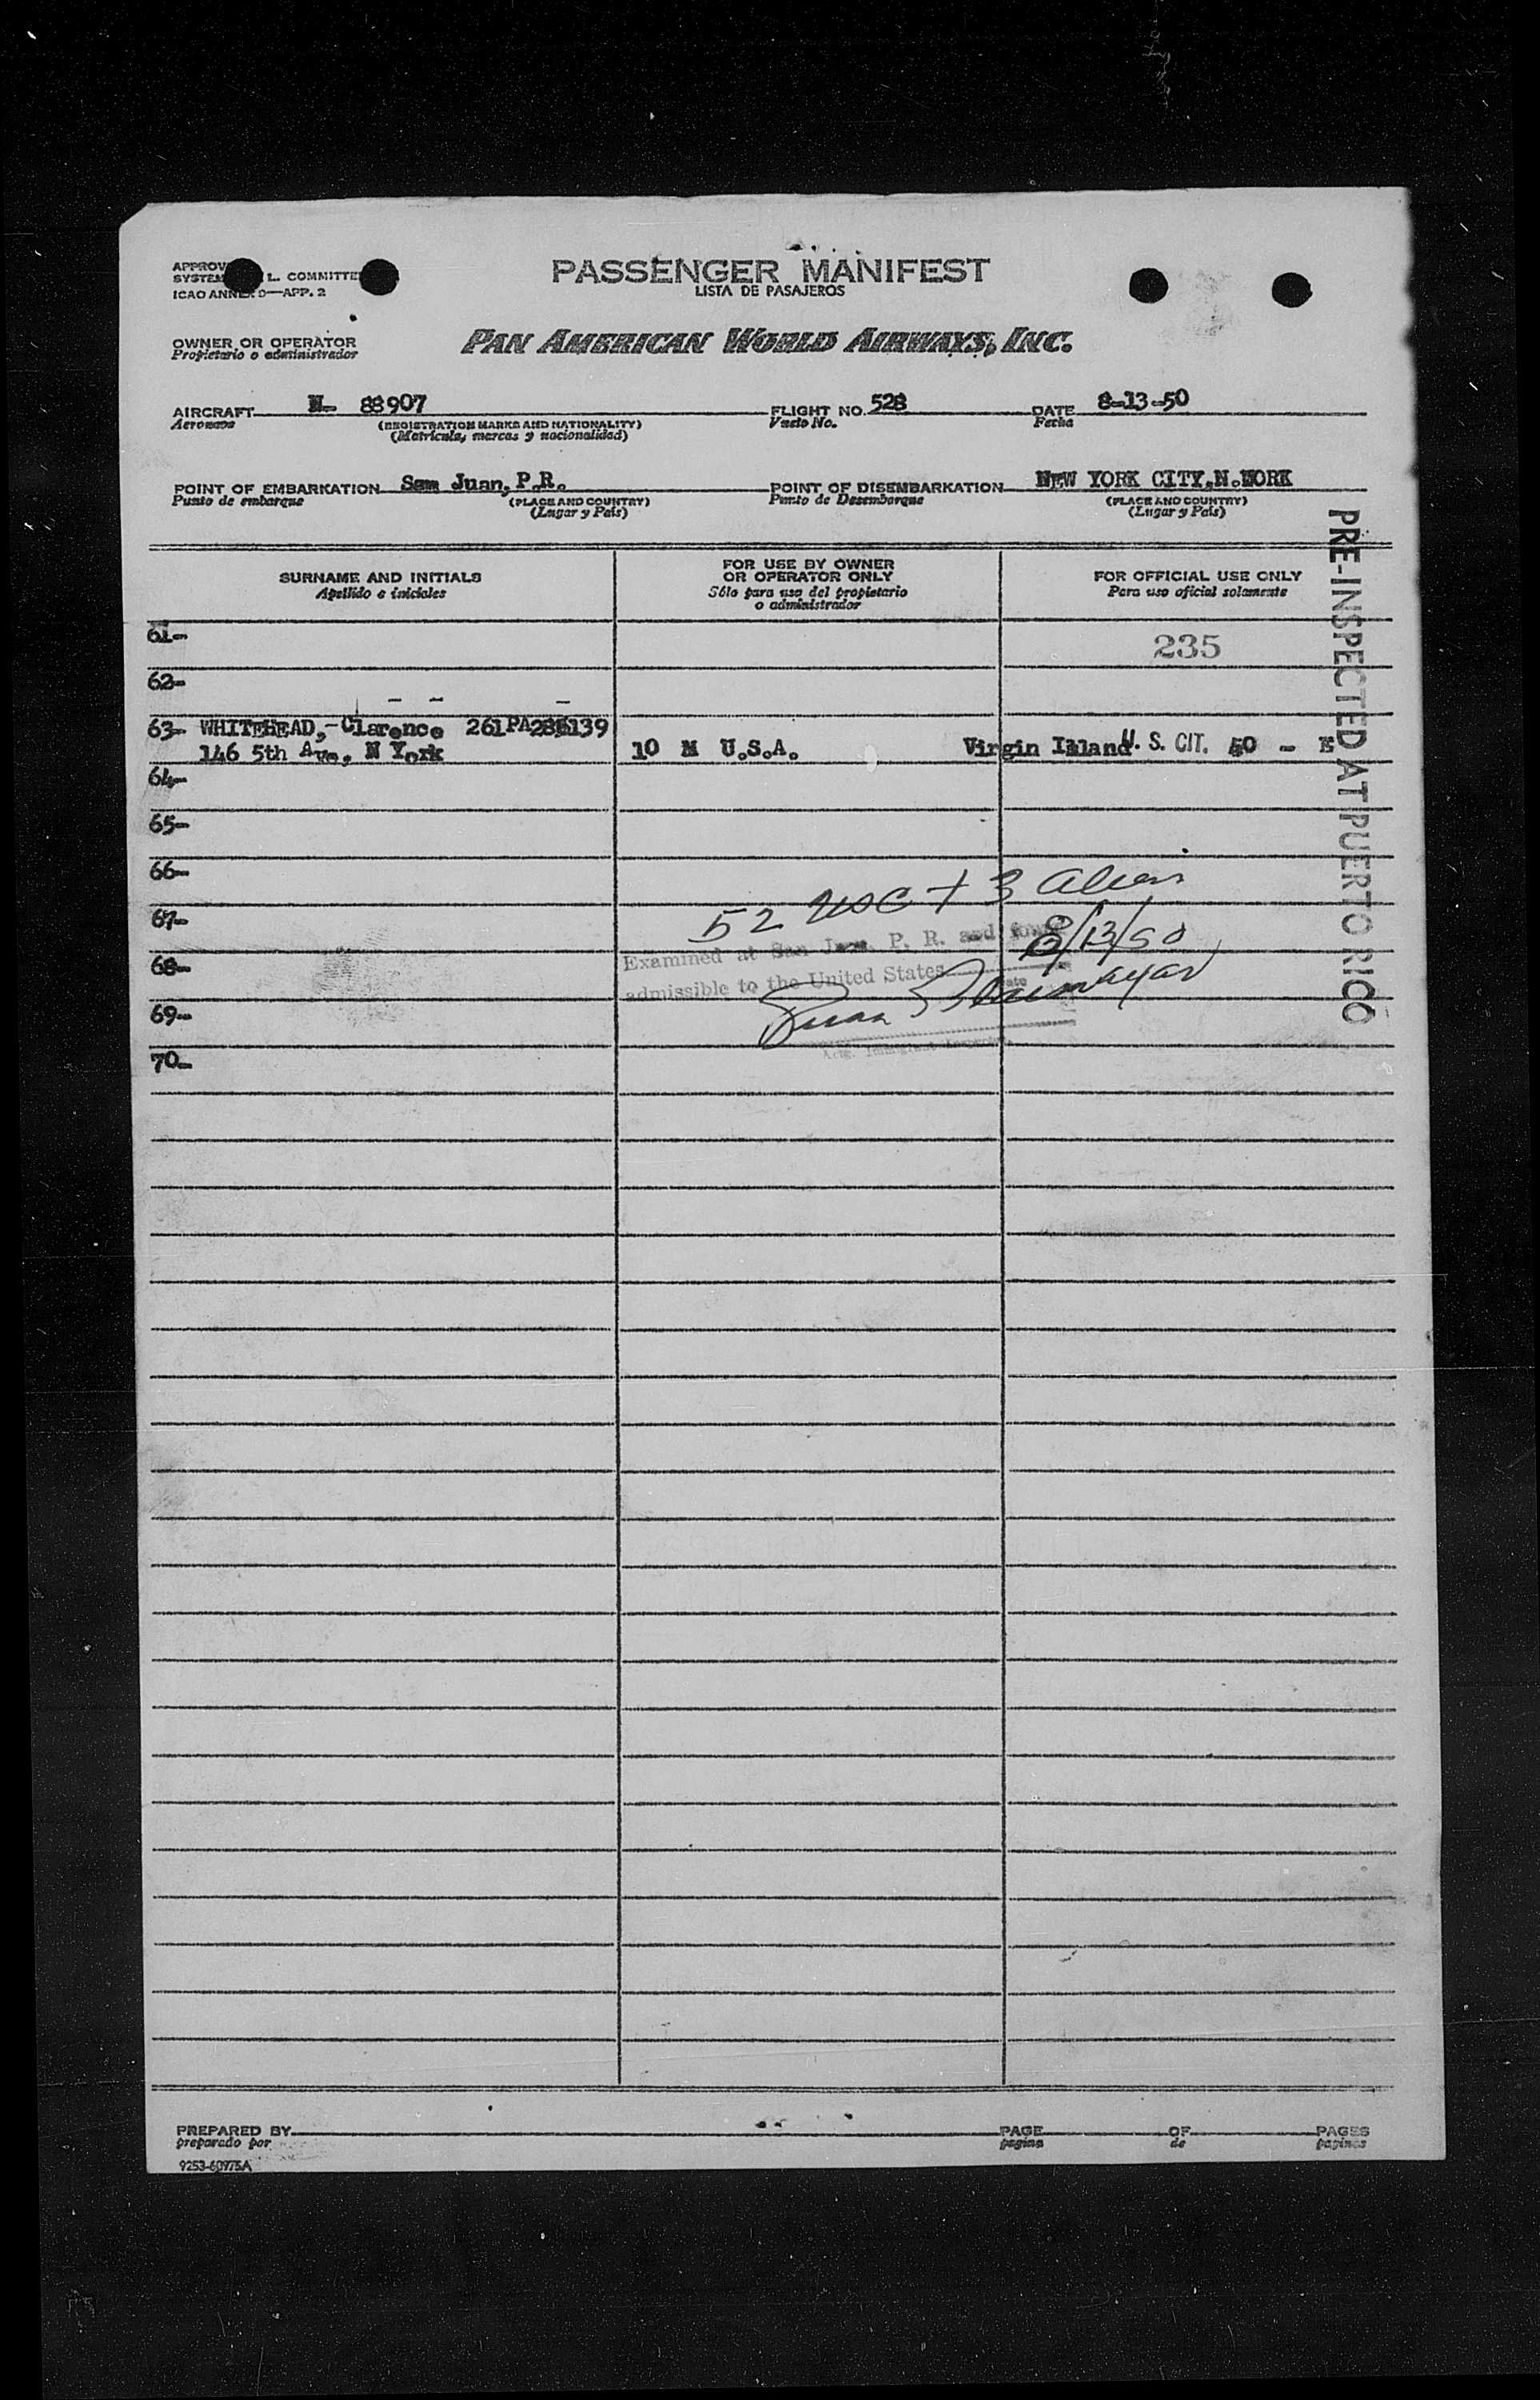 PASSENGER MANIFEST
LISTA DE PASAJEROS
APPROV
SYSTEM L. COMMITTE
ICAO ANNEX 9—APP. 2
OWNER OR OPERATOR
Propietario o administrador
PAN AMERICAN WORLD AIRWAYS, INC.
AIRCRAFT N- 88907 FLIGHT NO. 528 DATE 8-13-50
Aeronave (REGISTRATION MARKS AND NATIONALITY) Vuelo No. Fecha
(Matrícula, marcas y nacionalidad)
POINT OF EMBARKATION San Juan, P.R. POINT OF DISEMBARKATION NEW YORK CITY,N.WORK
Punto de embarque (PLACE AND COUNTRY) Punto de Desembarque (PLACE AND COUNTRY)
(Lugar y País) (Lugar y País)
SURNAME AND INITIALS FOR USE BY OWNER OR OPERATOR ONLY FOR OFFICIAL USE ONLY
Apellido e iniciales Sólo para uso del propietario o administrador Para uso oficial solamente
61-
235
62-
63- WHITEHEAD, -Clarence 261PA286139
146 5th Ave, N York 10 M U.S.A. Virgin Island U. S. CIT. 40 - E
64-
65-
66-
52 USC + 3 Alien
67-
Examined at San Juan, P. R. and found 8/13/50
68-
admissible to the United States
Date
69-
Juan
70-
PRE-INSPECTED AT PUERTO RICO
PREPARED BY PAGE OF PAGES
preparado por pagina de paginas
9253-60975A